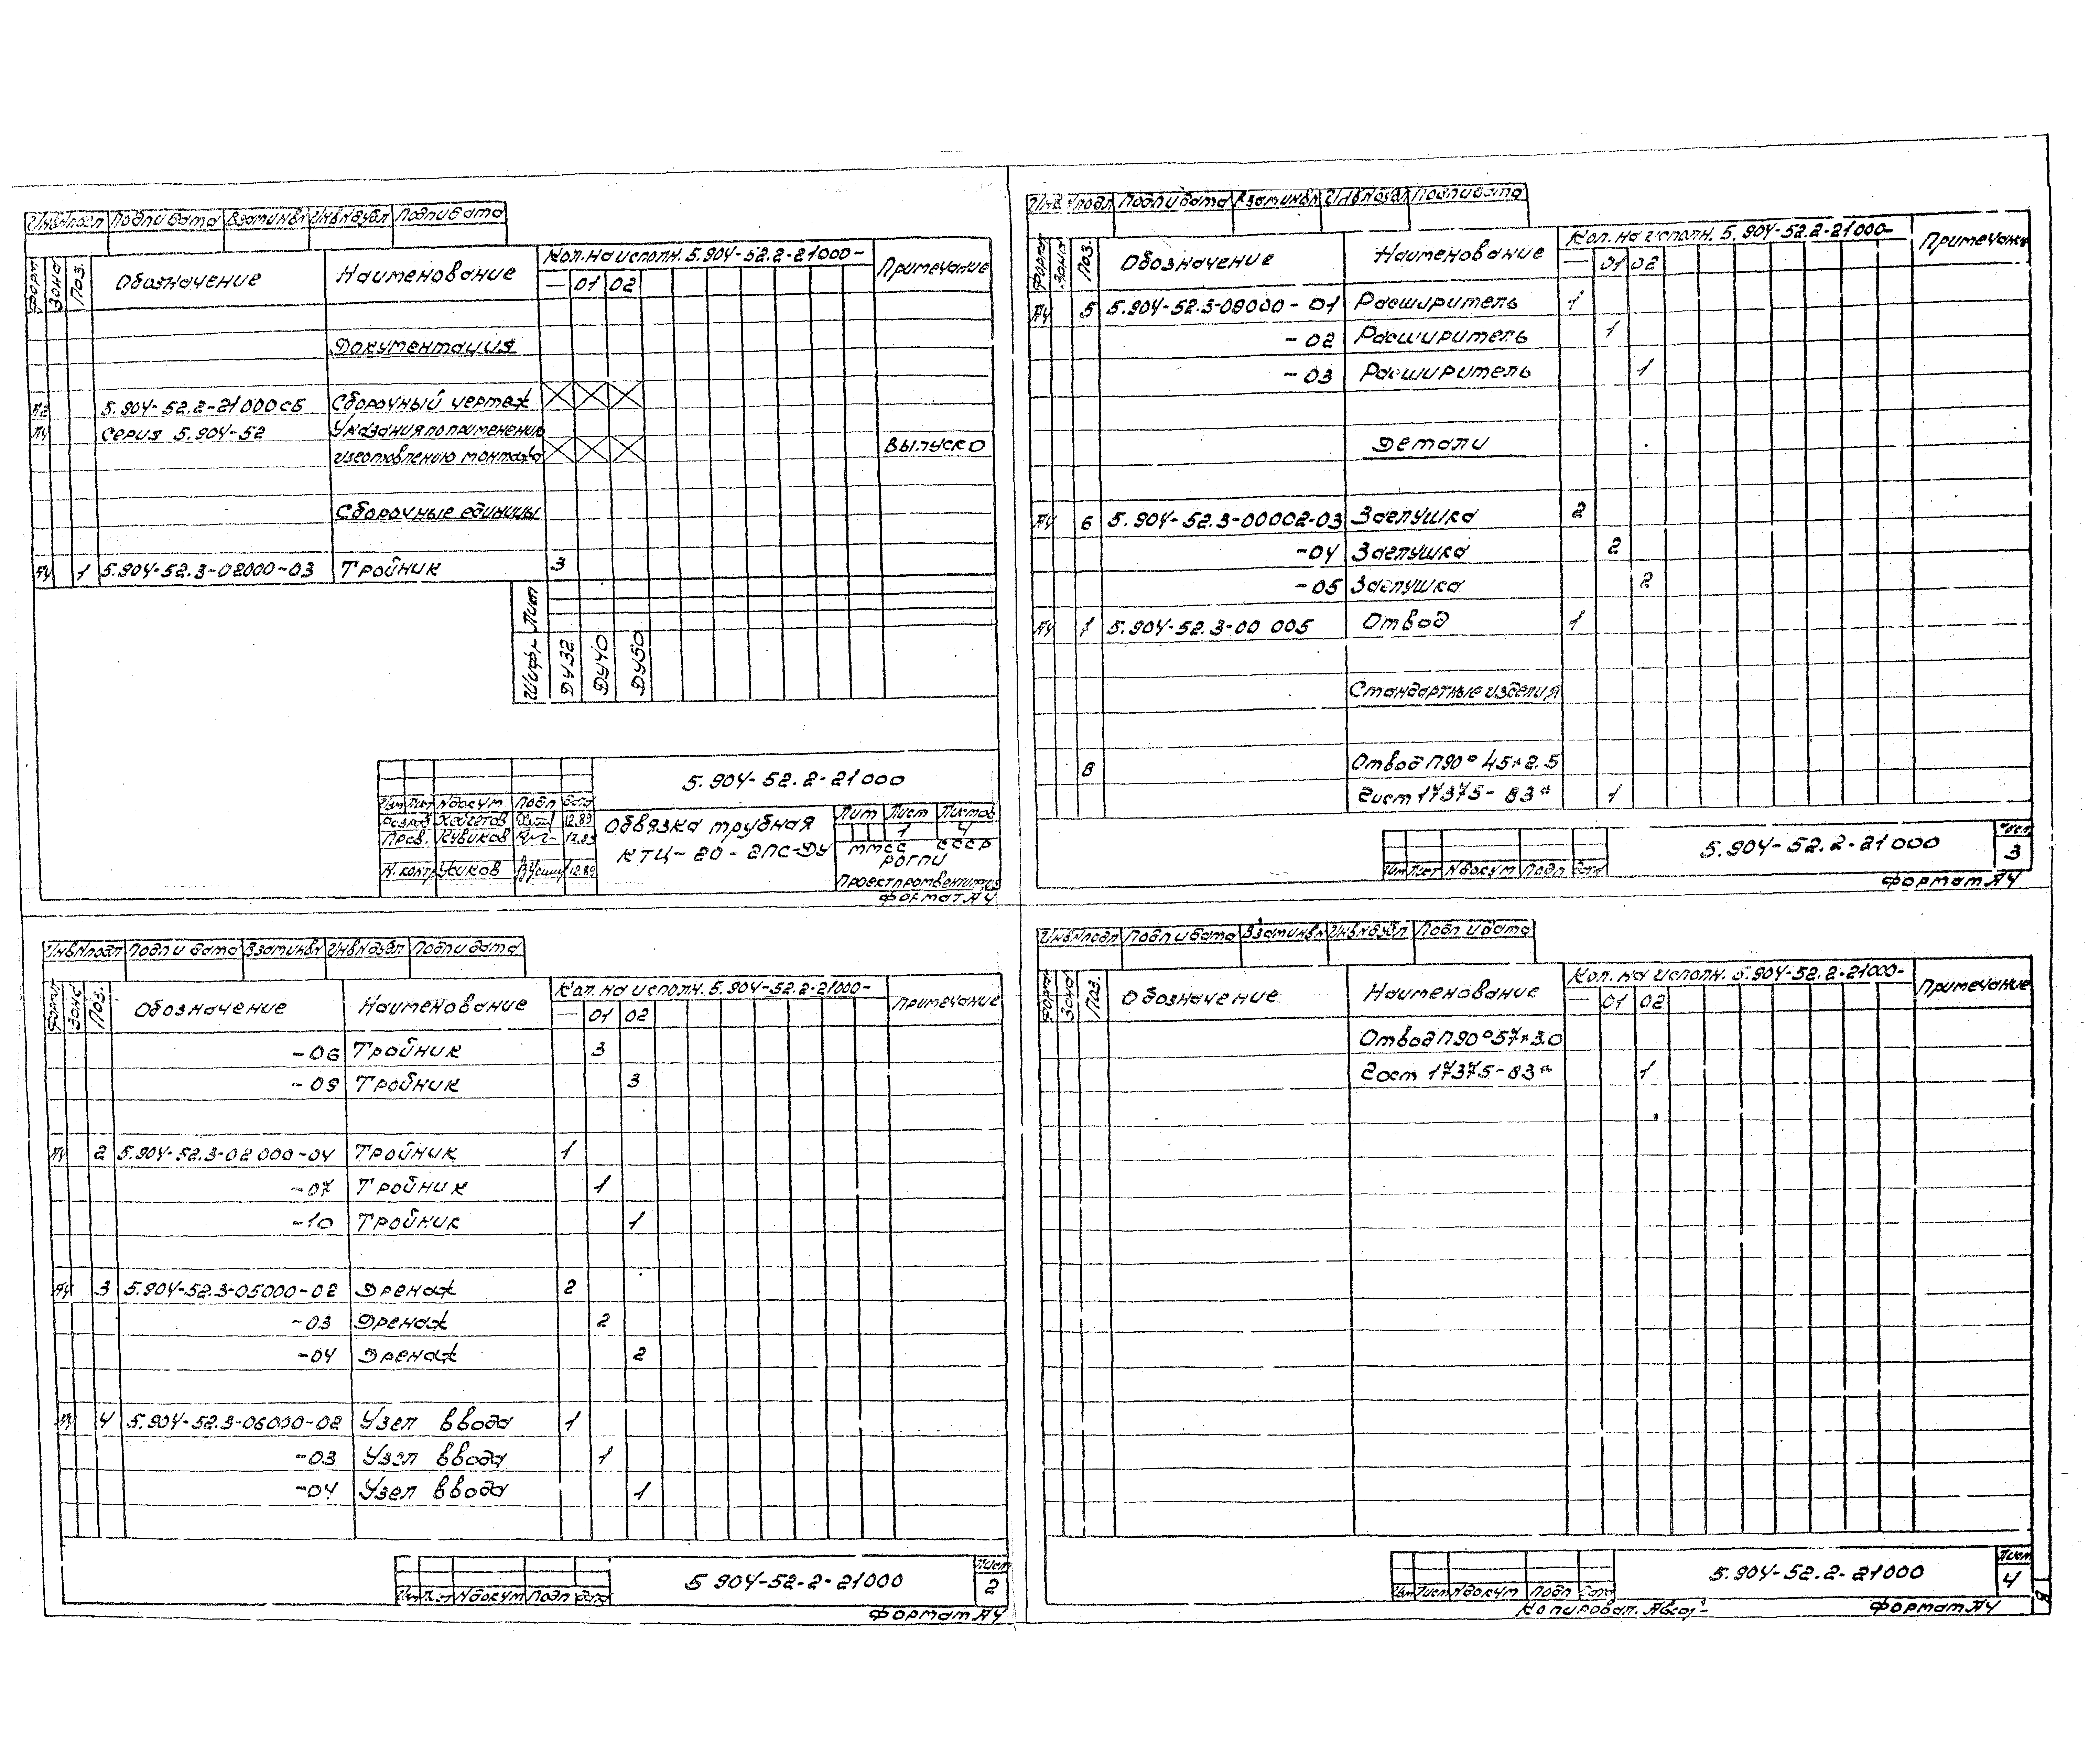 Инв№подл Подп и дата Взам инв№ Инв№дубл Подп и дата
Форм Зона Поз. Обозначение Наименование Кол. на исполн. 5.904-52.2-21000- Примечание
— 01 02
Документация
А2 5.904-52.2-21000СБ Сборочный чертеж
А4 Серия 5.904-52 Указания по применению
изготовлению монтажа Выпуск 0
Сборочные единицы
А4 1 5.904-52.3-02000-03 Тройник 3
Шифр Лит
ДУ32 ДУ40 ДУ50
5.904-52.2-21000
Изм Лист №докум Подп Дата
Разраб 12.89
Пров. Кувиков 12.89
Н.контр 12.89
Обвязка трубная
КТЦ-20-2ПС-ДУ
Лит Лист Листов
1 4
ММСС СССР
РОГПИ
Проектпромвентиляция
Формат А4
Инв№подл Подп и дата Взам инв№ Инв№дубл Подп и дата
Форм Зона Поз. Обозначение Наименование Кол. на исполн. 5.904-52.2-21000- Примечание
— 01 02
-06 Тройник 3
-09 Тройник 3
А4 2 5.904-52.3-02000-04 Тройник 1
-07 Тройник 1
-10 Тройник 1
А4 3 5.904-52.3-05000-02 Дренаж 2
-03 Дренаж 2
-04 Дренаж 2
А4 4 5.904-52.3-06000-02 Узел ввода 1
-03 Узел ввода 1
-04 Узел ввода 1
Изм Лист №докум Подп Дата
5 904-52-2-21000
Лист
2
Формат А4
Инв№подл Подп и дата Взам инв№ Инв№дубл Подп и дата
Форм Зона Поз. Обозначение Наименование Кол. на исполн. 5.904-52.2-21000- Примечание
— 01 02
А4 5 5.904-52.3-09000-01 Расширитель 1
-02 Расширитель 1
-03 Расширитель 1
Детали
А4 6 5.904-52.3-00002-03 Заглушка 2
-04 Заглушка 2
-05 Заглушка 2
А4 7 5.904-52.3-00 005 Отвод 1
Стандартные изделия
8 Отвод П90° 45×2.5
Гост 17375-83* 1
Изм Лист №докум Подп Дата
5.904-52.2-21000
Лист
3
Формат А4
Инв№подл Подп и дата Взам инв№ Инв№дубл Подп и дата
Форм Зона Поз. Обозначение Наименование Кол. на исполн. 5.904-52.2-21000- Примечание
— 01 02
Отвод П90° 57×3.0
Гост 17375-83* 1
Изм Лист №докум Подп Дата
5.904-52.2-21000
Лист
4
Копировал.
Формат А4